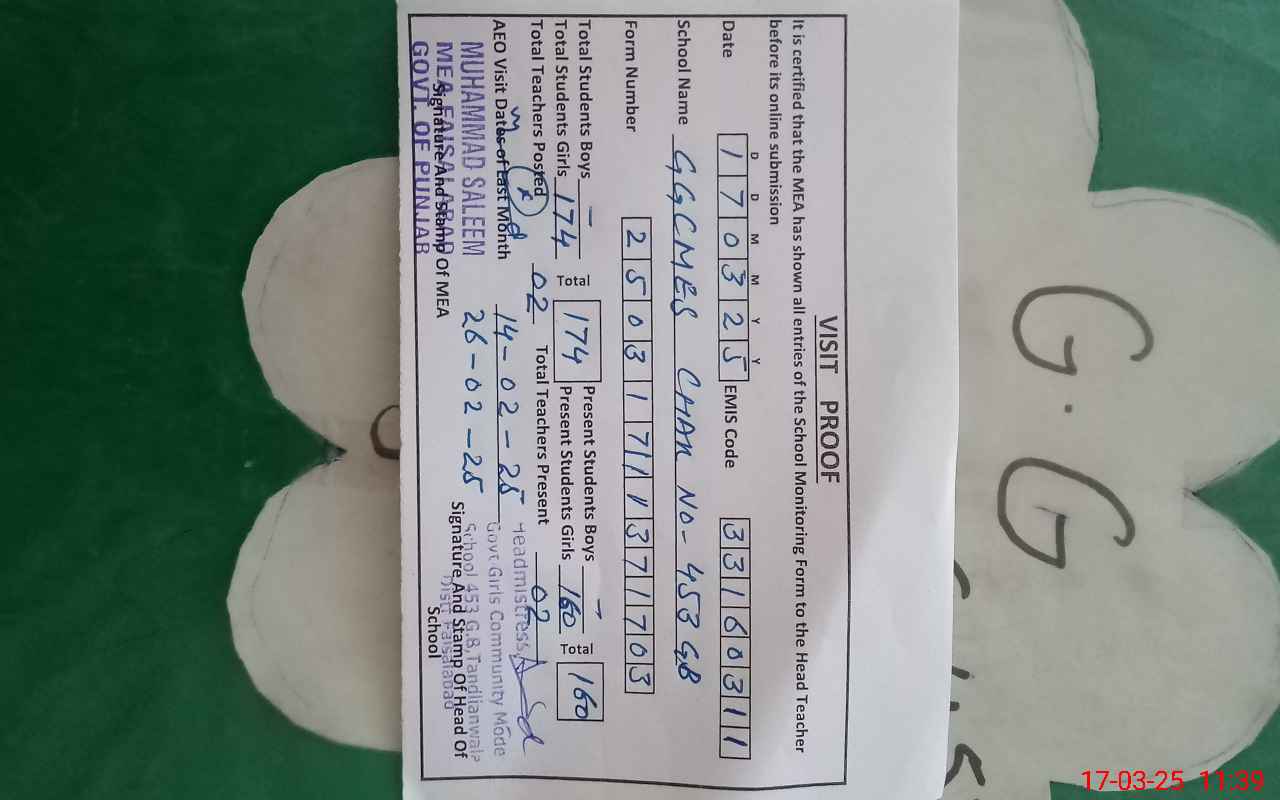 VISIT PROOF
It is certified that the MEA has shown all entries of the School Monitoring Form to the Head Teacher
before its online submission
D D M M Y Y
Date 170325 EMIS Code 33160311
School Name GGCMES CHAK NO- 453 GB
Form Number
Total Students Boys — Present Students Boys —
Total Students Girls 174 Total 174 Present Students Girls 160 Total 160
Total Teachers Posted 02 Total Teachers Present 02
AEO Visit Dates of Last Month 14-02-25
26-02-25
MUHAMMAD SALEEM
MEA FAISALABAD
GOVT. OF PUNJAB
Signature And Stamp Of MEA
Headmistress,
Govt Girls Community Mode
School 453 G.B, Tandlianwala
Distt Faisalabad
Signature And Stamp Of Head Of
School
G.G
17-03-25 11:39